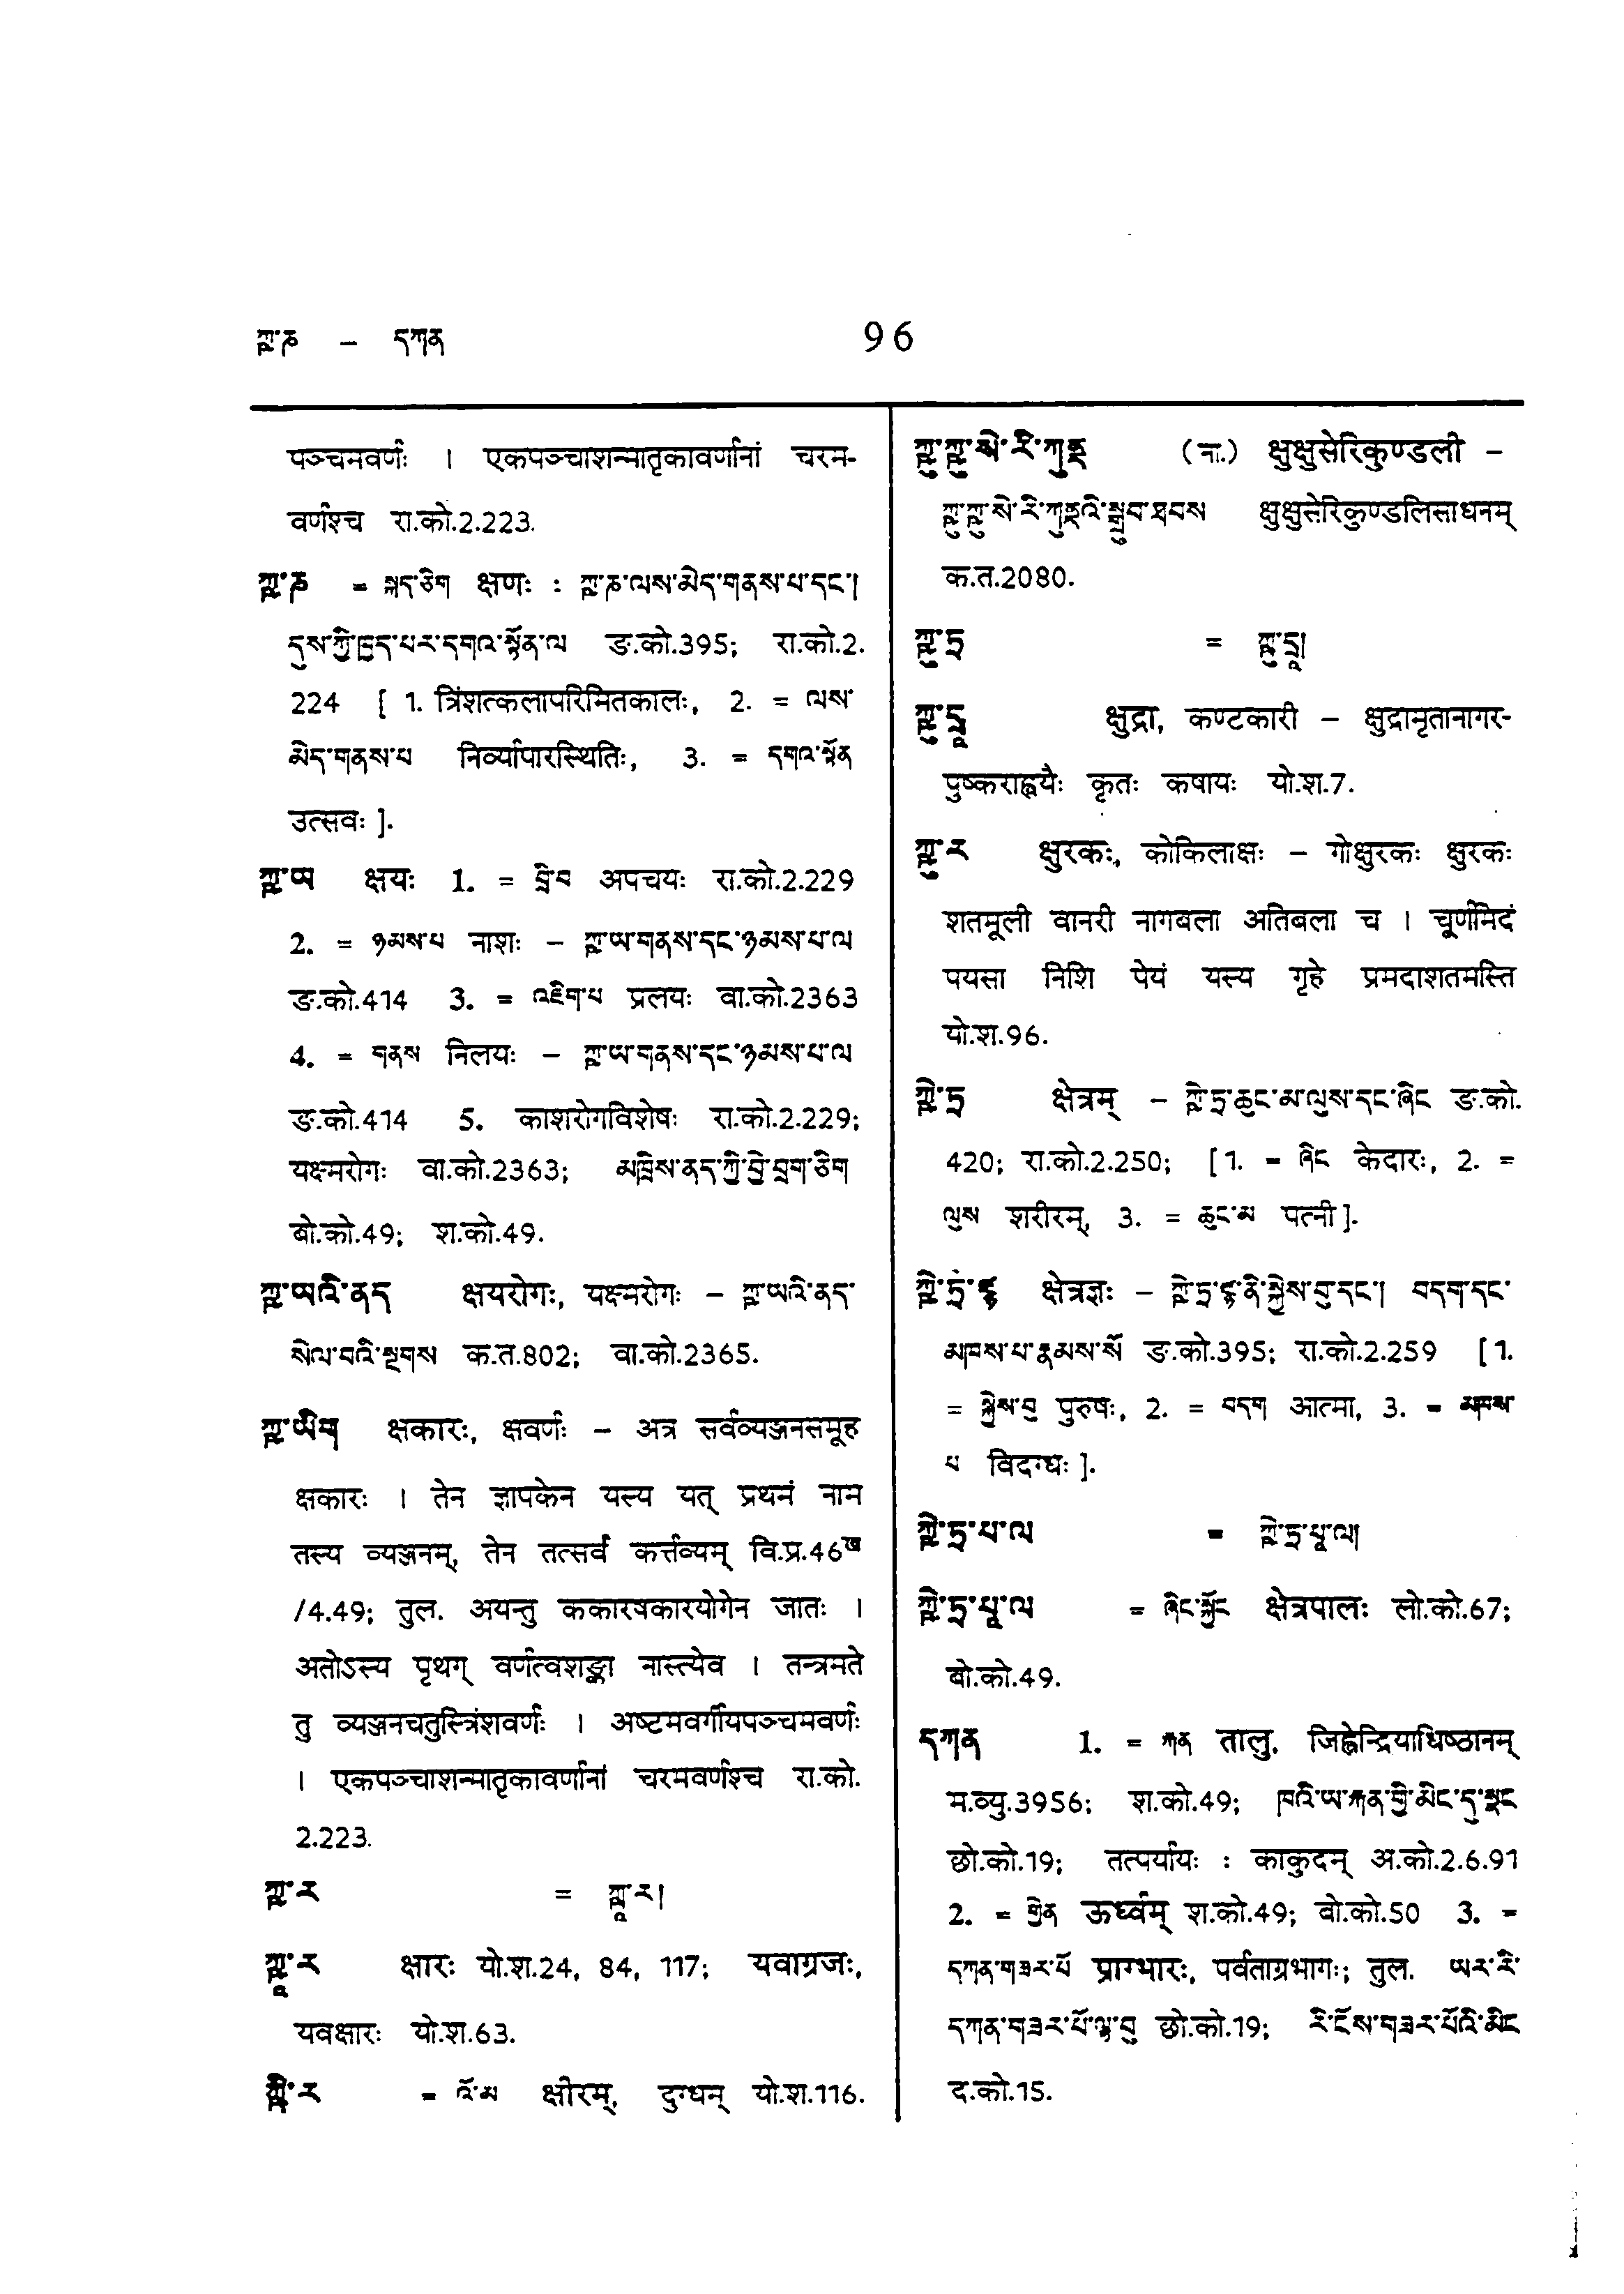 ཀྵ་ཎ – དཀན
96
पञ्चमवर्णः । एकपञ्चाशन्मातृकावर्णानां चरम-
वर्णश्च रा.को.2.223.
ཀྵ་ཎ = སྐད་ཅིག क्षणः : ཀྵ་ཎ་ལས་མེད་གནས་པ་དང་།
དུས་ཀྱི་ཁྱད་པར་དགའ་སྟོན་ལ ङ.को.395; रा.को.2.
224 [ 1. त्रिंशत्कलापरिमितकालः, 2. = ལས་
མེད་གནས་པ निर्व्यापारस्थितिः, 3. = དགའ་སྟོན
उत्सवः ].
ཀྵ་ཡ क्षयः 1. = བྲི་བ अपचयः रा.को.2.229
2. = ཉམས་པ नाशः – ཀྵ་ཡ་གནས་དང་ཉམས་པ་ལ
ङ.को.414 3. = འཇིག་པ प्रलयः वा.को.2363
4. = གནས निलयः – ཀྵ་ཡ་གནས་དང་ཉམས་པ་ལ
ङ.को.414 5. काशरोगविशेषः रा.को.2.229;
यक्ष्मरोगः वा.को.2363; མཁྲིས་ནད་ཀྱི་བྱེ་བྲག་ཅིག
बो.को.49; श.को.49.
ཀྵ་ཡའི་ནད क्षयरोगः, यक्ष्मरोगः – ཀྵ་ཡའི་ནད་
སེལ་བའི་སྔགས क.त.802; वा.को.2365.
ཀྵ་ཡིག क्षकारः, क्षवर्णः – अत्र सर्वव्यञ्जनसमूह
क्षकारः । तेन ज्ञापकेन यस्य यत् प्रथमं नाम
तस्य व्यञ्जनम्, तेन तत्सर्वं कर्त्तव्यम् वि.प्र.46ख
/4.49; तुल. अयन्तु ककारषकारयोगेन जातः ।
अतोऽस्य पृथग् वर्णत्वशङ्का नास्त्येव । तन्त्रमते
तु व्यञ्जनचतुस्त्रिंशवर्णः । अष्टमवर्गीयपञ्चमवर्णः
। एकपञ्चाशन्मातृकावर्णानां चरमवर्णश्च रा.को.
2.223.
ཀྵ་ར = ཀྵཱ་ར།
ཀྵཱ་ར क्षारः यो.श.24, 84, 117; यवाग्रजः,
यवक्षारः यो.श.63.
ཀྵཱི་ར = འོ་མ क्षीरम्, दुग्धम् यो.श.116.
ཀྵུ་ཀྵུ་སེ་རི་ཀུནྜ (ना.) क्षुक्षुसेरिकुण्डली –
ཀྵུ་ཀྵུ་སེ་རི་ཀུནྜའི་སྒྲུབ་ཐབས क्षुक्षुसेरिकुण्डलिसाधनम्
क.त.2080.
ཀྵུ་དྲ = ཀྵུ་དྲཱ།
ཀྵུ་དྲཱ क्षुद्रा, कण्टकारी – क्षुद्रामृतानागर-
पुष्कराह्वयैः कृतः कषायः यो.श.7.
ཀྵུ་ར क्षुरकः, कोकिलाक्षः – गोक्षुरकः क्षुरकः
शतमूली वानरी नागबला अतिबला च । चूर्णमिदं
पयसा निशि पेयं यस्य गृहे प्रमदाशतमस्ति
यो.श.96.
ཀྵེ་ཏྲ क्षेत्रम् – ཀྵེ་ཏྲ་ཆུང་མ་ལུས་དང་ཞིང ङ.को.
420; रा.को.2.250; [1. = ཞིང केदारः, 2. =
ལུས शरीरम्, 3. = ཆུང་མ पत्नी ].
ཀྵེ་ཏྲ་ཛྙ क्षेत्रज्ञः – ཀྵེ་ཏྲ་ཛྙ་ནི་སྐྱེས་བུ་དང་། བདག་དང་
མཁས་པ་རྣམས་སོ ङ.को.395; रा.को.2.259 [ 1.
= སྐྱེས་བུ पुरुषः, 2. = བདག आत्मा, 3. = མཁས་
པ विदग्धः ].
ཀྵེ་ཏྲ་པ་ལ = ཀྵེ་ཏྲ་པཱ་ལ།
ཀྵེ་ཏྲ་པཱ་ལ = ཞིང་སྐྱོང क्षेत्रपालः लो.को.67;
बो.को.49.
དཀན 1. = རྐན तालु, जिह्वेन्द्रियाधिष्ठानम्
म.व्यु.3956; श.को.49; ཁའི་ཡ་རྐན་གྱི་མིང་དུ་སྣང
छो.को.19; तत्पर्यायः : काकुदम् अ.को.2.6.91
2. = གྱེན ऊर्ध्वम् श.को.49; बो.को.50 3. =
དཀན་གཟར་པོ प्राग्भारः, पर्वताग्रभागः; तुल. ཡར་རི་
དཀན་གཟར་པོ་ལྟ་བུ छो.को.19; རི་ངོས་གཟར་པོའི་མིང
द.को.15.